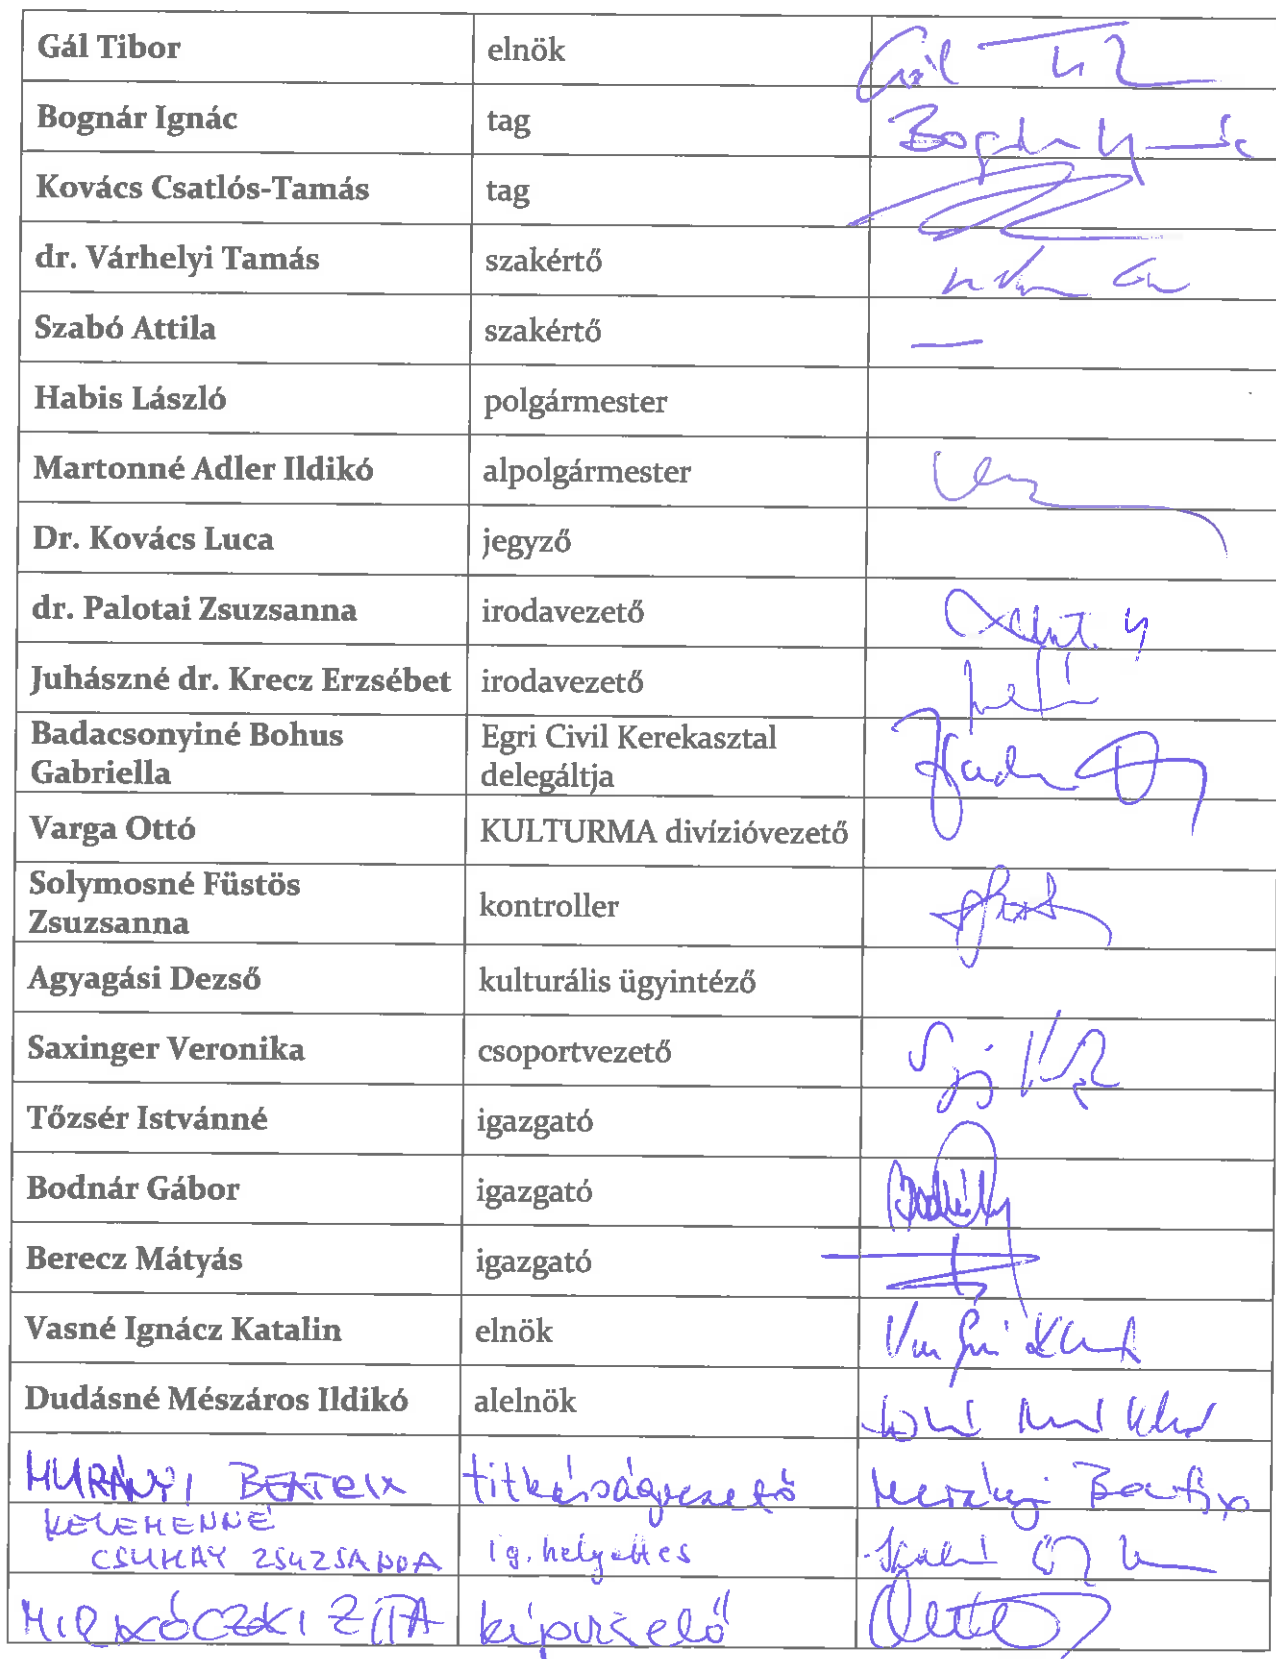 Gál Tibor elnök Gál T
Bognár Ignác tag Bognár Ignác
Kovács Csatlós-Tamás tag
dr. Várhelyi Tamás szakértő
Szabó Attila szakértő —
Habis László polgármester
Martonné Adler Ildikó alpolgármester
Dr. Kovács Luca jegyző
dr. Palotai Zsuzsanna irodavezető
Juhászné dr. Krecz Erzsébet irodavezető
Badacsonyiné Bohus
Gabriella
Egri Civil Kerekasztal
delegáltja
Varga Ottó KULTURMA divízióvezető
Solymosné Füstös
Zsuzsanna
kontroller
Agyagási Dezső kulturális ügyintéző
Saxinger Veronika csoportvezető
Tőzsér Istvánné igazgató
Bodnár Gábor igazgató
Berecz Mátyás igazgató
Vasné Ignácz Katalin elnök
Dudásné Mészáros Ildikó alelnök
MURÁNYI BEATRIX titkárságvezető Murányi Beatrix
KELEMENNÉ
CSUHAY ZSUZSANNA ig. helyettes
MIRKÓCZKI ZITA képviselő